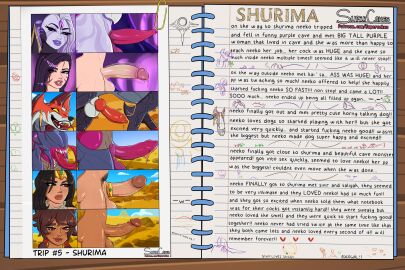 SHURIMA
on the way to shurima neeko tripped
and fell in funny purple cave and met BIG TALL PURPLE
woman that lived in cave and she was more than happy to
neeko her job.. her cock was HUGE and she came so
much inside neeko multiple times! seemed like it will never stop!
on the way outside neeko met . ASS WAS HUGE and her
pp was twitching so much! neeko offered to help! she happily
started fucking neeko SO FAST!! non stop and came a LOT!
SOOO much.. neeko ended up being all filled up again..
neeko finally got out and met pretty cute horny talking dog!
neeko loves dogs so started playing with her! but she got
excited very quickly.. and started fucking neeko good! wasn't
the biggest but neeko made dog super happy and excited!
neeko finally got close to shurima and beautiful cave monster
appeared! got into ass quickly, seemed to love neeko! her pp
was the biggest! couldn't even move when she was done...
neeko FINALLY got to shurima! met sivir and saliyah, they seemed
to be very intimate and they LOVED neeko had so much fun!
and they got so excited when neeko told them what notebook
was for! their cocks got instantly hard! they were sweaty but
neeko loved the smell and they were quick to start fucking good!
together!! neeko never had tried two at the same time like that
they both came lots and neeko loved every second of it! will
remember forever!!
TRIP #5 - SHURIMA